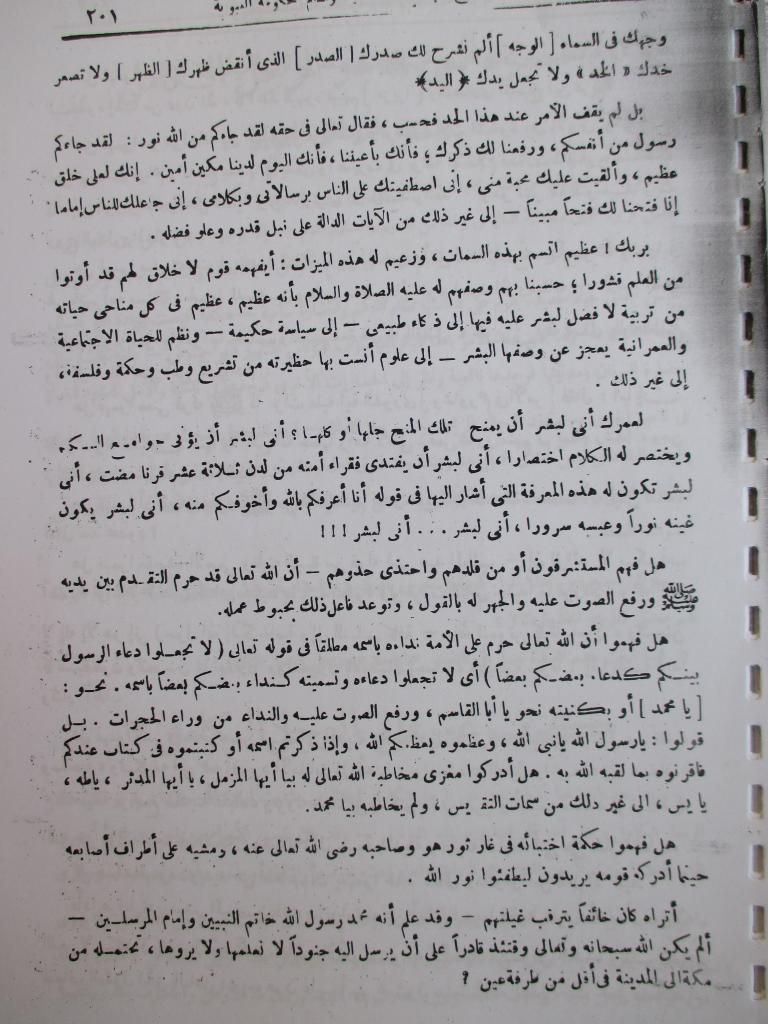 ٢٠١
وجهك فى السماء [ الوجه ] ألم نشرح لك صدرك [ الصدر ] الذى أنقض ظهرك [ الظهر ] ولا تصعر
خدك « الخد » ولا تجعل يدك ﴿ اليد ﴾
بل لم يقف الأمر عند هذا الحد فحسب ، فقال تعالى فى حقه لقد جاءكم من الله نور : لقد جاءكم
رسول من أنفسكم ، ورفعنا لك ذكرك ؛ فأنك بأعيننا ، فأنك اليوم لدينا مكين أمين . إنك لعلى خلق
عظيم ، وألقيت عليك محبة منى ، إنى اصطفيتك على الناس برسالاتى وبكلامى ، إنى جاعلك للناس إماما
إنا فتحنا لك فتحاً مبيناً — إلى غير ذلك من الآيات الدالة على نبل قدره وعلو فضله .
بربك ! عظيم اتسم بهذه السمات ، وزعيم له هذه الميزات : أيفهمه قوم لا خلاق لهم قد أوتوا
من العلم قشورا ؛ حسبنا بهم وصفهم له عليه الصلاة والسلام بأنه عظيم ، عظيم فى كل مناحى حياته
من تربية لا فضل لبشر عليه فيها إلى ذكاء طبيعى — إلى سياسة حكيمة — ونظم للحياة الاجتماعية
والعمرانية يعجز عن وصفها البشر — إلى علوم أنست بها حظيرته من تشريع وطب وحكمة وفلسفة ،
إلى غير ذلك .
لعمرك أنى لبشر أن يمنح تلك المنح جلها أو كلها ؟ أنى لبشر أن يؤتى جوامع الكلم
ويختصر له الكلام اختصارا ، أنى لبشر أن يفتدى فقراء أمته من لدن ثلاثة عشر قرنا مضت ، أنى
لبشر تكون له هذه المعرفة التى أشار اليها فى قوله أنا أعرفكم بالله وأخوفكم منه ، أنى لبشر يكون
غينه نوراً وعبسه سرورا ، أنى لبشر ... أنى لبشر !!!
هل فهم المستشرقون أو من قلدهم واحتذى حذوهم — أن الله تعالى قد حرم التقدم بين يديه
ﷺ ورفع الصوت عليه والجهر له بالقول ، وتوعد فاعل ذلك بحبوط عمله.
هل فهموا أن الله تعالى حرم على الأمة نداءه باسمه مطلقاً فى قوله تعالى ( لا تجعلوا دعاء الرسول
بينكم كدعاء بعضكم بعضاً ) أى لا تجعلوا دعاءه وتسميته كنداء بعضكم بعضاً باسمه . نحو :
[ يا محمد ] أو بكنيته نحو يا أبا القاسم ، ورفع الصوت عليه والنداء من وراء الحجرات . بل
قولوا : يارسول الله يانبى الله ، وعظموه يعظمكم الله ، وإذا ذكرتم اسمه أو كتبتموه فى كتاب عندكم
فاقرنوه بما لقبه الله به . هل أدركوا مغزى مخاطبة الله تعالى له بيا أيها المزمل ، يا أيها المدثر ، ياطه ،
يا يس ، الى غير ذلك من سمات التقديس ، ولم يخاطبه بيا محمد .
هل فهموا حكمة اختبائه فى غار ثور هو وصاحبه رضى الله تعالى عنه ، ومشيه على أطراف أصابعه
حينما أدركه قومه يريدون ليطفئوا نور الله .
أتراه كان خائفاً يترقب غيلتهم — وقد علم أنه محمد رسول الله خاتم النبيين وإمام المرسلين —
ألم يكن الله سبحانه وتعالى وقتئذ قادراً على أن يرسل اليه جنوداً لا نعلمها ولا يروها ، تحتمله من
مكة الى المدينة فى أقل من طرفة عين ؟